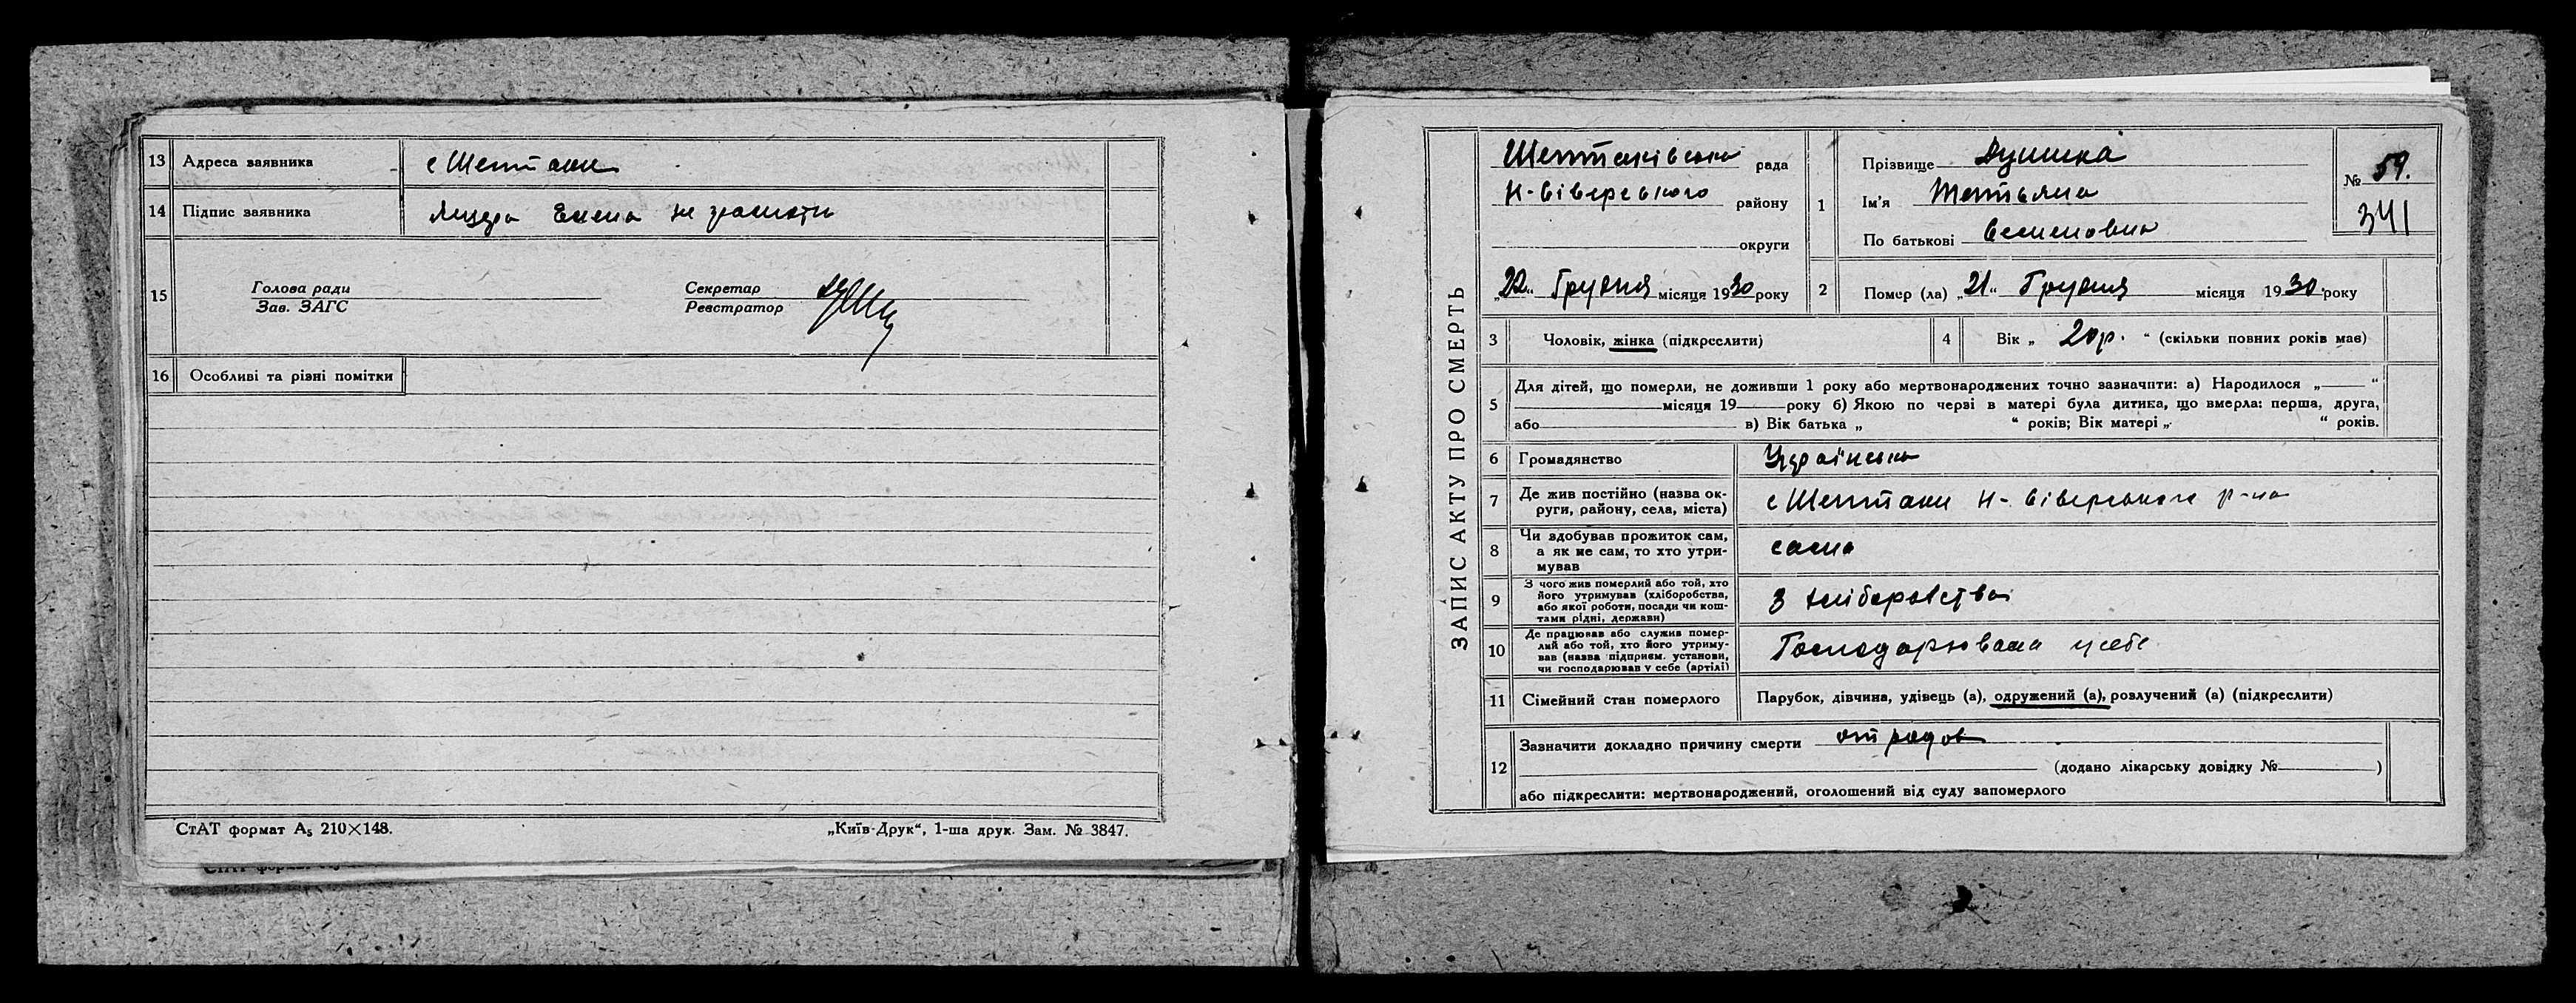 13 Адреса заявника с Шептаки
14 Підпис заявника Елена не грамотн
15 Голова ради
Зав. ЗАГС
Секретар
Реєстратор
16 Особливі та різні помітки
СтАТ формат А₅ 210×148.
„Київ-Друк“, 1-ша друк. Зам. № 3847.
ЗАПИС АКТУ ПРО СМЕРТЬ
Шептаківська рада
Н-Сіверського району
округи
„22“ Грудня місяця 1930 року
1 Прізвище Душка
Ім'я Тетьяна
По батькові Семеновна
№ 59.
341
2 Помер (ла) „21“ Грудня місяця 1930 року
3 Чоловік, жінка (підкреслити)
4 Вік „ 20 р. “ (скільки повних років мав)
5 Для дітей, що померли, не доживши 1 року або мертвонароджених точно зазначити: а) Народилося „ “
місяця 19 року б) Якою по черзі в матері була дитина, що вмерла: перша, друга,
або в) Вік батька „ “ років; Вік матері „ “ років.
6 Громадянство Українська
7 Де жив постійно (назва ок-
руги, району, села, міста) с Шептаки Н-Сіверського р-на
8 Чи здобував прожиток сам,
а як не сам, то хто утри-
мував сама
9 З чого жив померлий або той, хто
його утримував (хліборобства,
або якої роботи, посади чи кош-
тами рідні, держави) З хліборобства
10 Де працював або служив помер-
лий або той, хто його утриму-
вав (назва підприєм. установи,
чи господарював у себе (артілі) Господарювала у себе
11 Сімейний стан померлого Парубок, дівчина, удівець (а), одружений (а), розлучений (а) (підкреслити)
12 Зазначити докладно причину смерти от родов
(додано лікарську довідку № )
або підкреслити: мертвонароджений, оголошений від суду запомерлого